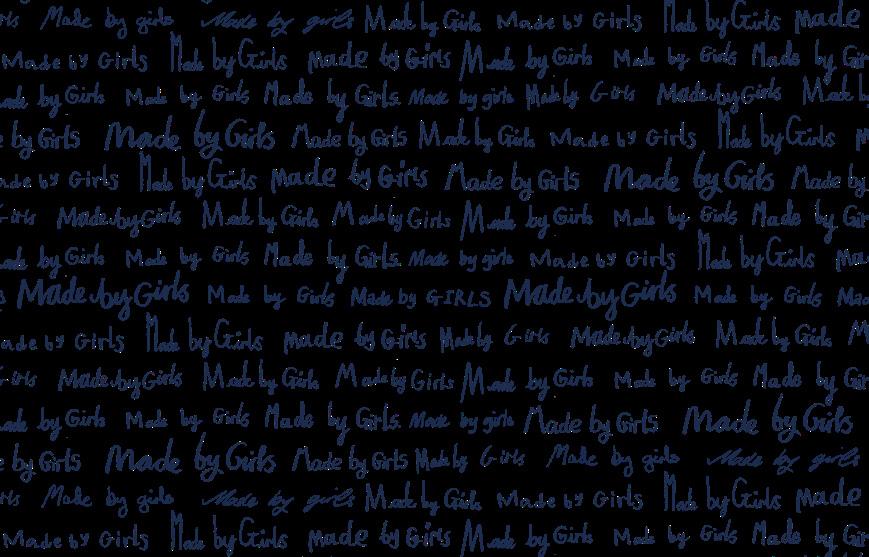 Made by girls Made by girls Made by Girls Made by Girls Made by Girls Made
Made by Girls Made by Girls Made by Girls Made by Girls Made by Girls Made by
by Girls Made by Girls Made by Girls. Made by girls Made by Girls Made by Girls Made
by Girls Made by Girls Made by Girls Made by Girls Made by Girls Made by Girls
by Girls Made by Girls Made by Girls Made by Girls Made by Girls Made by
Made by Girls Made by Girls Made by Girls Made by Girls Made by Girls Made by
by Girls Made by Girls Made by Girls. Made by girls Made by Girls Made by Girls
Made by Girls Made by Girls Made by GIRLS Made by Girls Made by Girls
by Girls Made by Girls Made by Girls Made by Girls Made by Girls Made by Girls
Made by Girls Made by Girls Made by Girls Made by Girls Made by Girls Made by
by Girls Made by Girls Made by Girls. Made by girls Made by Girls Made by Girls
by Girls Made by Girls Made by Girls Made by Girls Made by girls Made by girls
Made by girls Made by girls Made by Girls Made by Girls Made by Girls Made
Made by Girls Made by Girls Made by Girls Made by Girls Made by Girls Made by